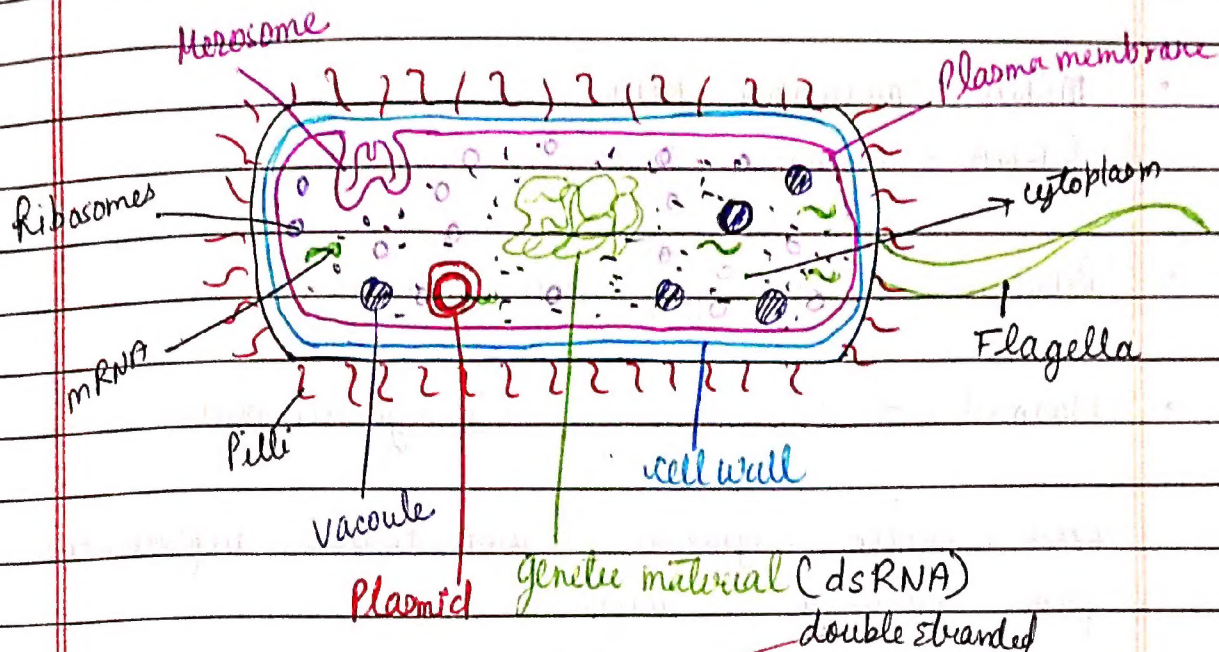 Mezosome
Plasma membrane
Ribosomes
cytoplasm
mRNA
Flagella
Pilli
cell wall
vacoule
Plasmid
genetic material (dsRNA)
double stranded